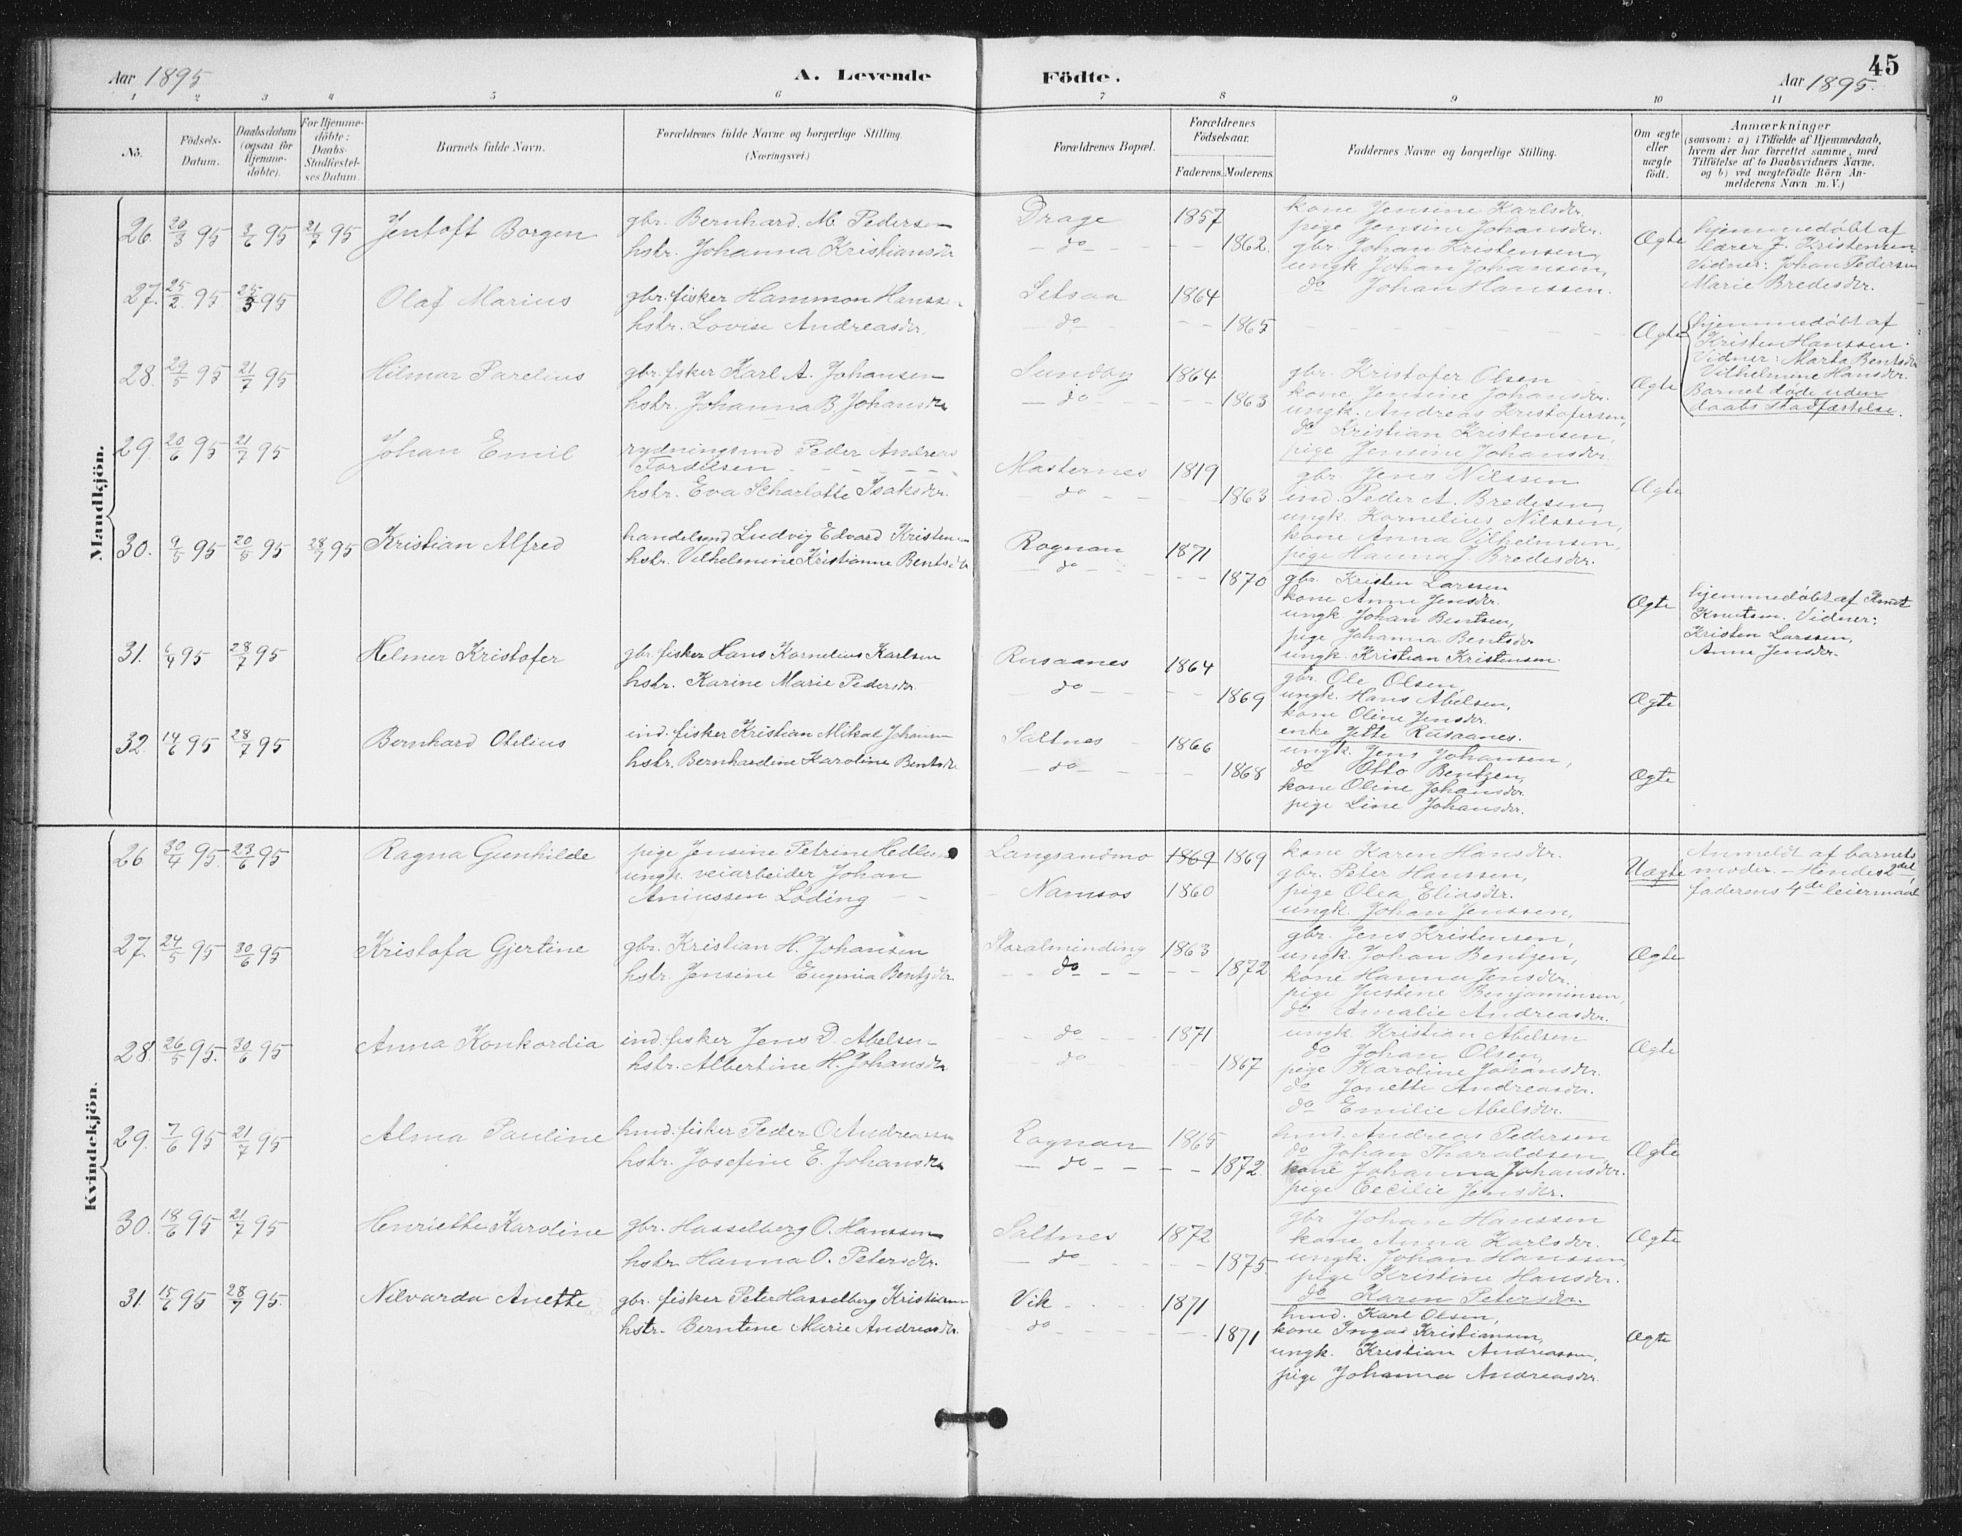 Aar 1895
A. Levende
Födte.
45
Aar 1895.
1 2 3 4 5 6 7 8 9 10 11
No.
Födsels-
Datum.
Daabsdatum
(ogsaa for
Hjemme-
döbte).
For Hjemme-
döbte:
Daabs-
Stadfæstel-
ses Datum.
Barnets fulde Navn.
Forældrenes fulde Navne og borgerlige Stilling.
(Næringsvei.)
Forældrenes Bopæl.
Forældrenes
Födselsaar.
Faderens. Moderens.
Faddernes Navne og borgerlige Stilling.
Om ægte
eller
uægte
födt.
Anmærkninger
(saasom: a) i Tilfælde af Hjemmedaab,
hvem der har forrettet samme, med
Tilföielse af to Daabsvidners Navne,
og b) ved uægtefödte Börn An-
melderens Navn m. V.)
Mandkjön.
26. 20/3 95 3/6 95 21/7 95 Jentoft Borgen
gbr. Bernhard M. Pedersen
hstr. Johanna Kristiansdr
Drage 1857
do 1862.
kone Jensine Karlsdr.
pige Jensine Johansdr.
gbr. Johan Kristensen,
ungk Johan Johansen,
do Johan Hanssen.
Ægte
hjemmedøbt af
lærer J. Kristensen
Vidner: Johan Pedersen
Marie Bredesdr.
27. 25/2 95 25/3 95 Olaf Marius
gbr. fisker Hammon Hanssen
hstr. Lovise Andreasdr.
Setsaa 1864
do 1865
Ægte
hjemmedøbt af
Kristen Hanssen.
Vidner: Marta Bentsdr
Vilhelmine Hansdr.
Barnet døde uden
daabs stadfæstelse.
28. 29/5 95 21/7 95 Hilmar Parelius
gbr. fisker Karl A. Johansen
hstr. Johanna B. Johansdr
Sundby 1864
do 1863
gbr. Kristofer Olsen
kone Jensine Johansdr.
ungk. Andreas Kristofersen,
do Kristian Kristensen,
pige Jensine Johansdr
Ægte
29. 20/6 95 21/7 95 Johan Emil
rydningsmd Peder Andreas
hstr. Eva Scharlotte Isaksdr.
1819
do 1863
gbr. Jens Nilssen
ind. Peder A. Bredesen,
ungk. Kornelius Nilssen,
kone Anna Vilhelmsen,
pige Hanna J Bredesdr.
Ægte
30. 9/5 95 20/5 95 28/7 95 Kristian Alfred
handelsmd Ludvig Edvard Kristensen
hstr. Vilhelmine Kristianne Bentsdr
Rognan 1871
do 1870
gbr. Kristen Larssen
kone Anne Jensdr.
ungk Johan Bentsen,
pige Johanna Bentsdr
ungk. Kristian Kristensen
Ægte
hjemmedøbt af Knut
Knutsen. Vidner:
Kristen Larssen,
Anne Jensdr.
31. 6/4 95 28/7 95 Helmer Kristofer
gbr. fisker Hans Kornelius Karlsen
hstr. Karine Marie Pedersdr
Rusaanes 1864
do 1869
gbr. Ole Olsen
ungk. Hans Abelsen,
kone Oline Jensdr.
enke Jette Rusaanes.
Ægte
32. 14/6 95 28/7 95 Bernhard Otelius
ind. fisker Kristian Mikal Johansen
hstr. Bernhardine Karoline Bentsdr
Saltnes 1866
do 1868
ungk. Jens Johansen,
do Otto Bentzen,
kone Oline Johansdr.
pige Line Johansdr.
Ægte
Kvindekjön.
26 30/4 95. 23/6 95 Ragna Gunhilde
pige Jensine Petrine Hedlund
ungk. veiarbeider Johan
Aniussen Löding
Langsandmo 1869 1869
Namsos 1860
kone Karen Hansdr.
gbr. Peter Hanssen,
pige Olea Eliasdr.
ungk. Johan Jenssen,
Uægte
Anmeldt af barnets
moder. - Hendes 2det
faderens 4de leiermaal
27. 24/5 95 30/6 95 Kristofa Gjertine
gbr. Kristian H. Johansen
hstr. Jensine Eugenia Bentzdr
Storalminding 1863
do 1872
gbr. Jens Kristensen,
ungk. Johan Bentzen,
kone Hanna Jensdr.
pige Justine Benjaminsen,
do Amalie Andreasdr.
Ægte
28. 26/5 95. 30/6 95 Anna Konkordia
ind. fisker Jens D. Abelsen
hstr. Albertine H. Johansdr
do 1871
do 1867
ungk. Kristian Abelsen
do Johan Olsen,
pige Karoline Johansdr.
do Jonette Andreasdr.
do Emilie Abelsdr.
Ægte
29. 7/6 95 21/7 95 Alma Pauline
hmd. fisker Peder O. Andreassen
hstr. Josefine E. Johansdr
Rognan 1865
do 1872.
hmd. Andreas Pedersen
do Johan Tharaldsen,
kone Johanna Johansdr.
pige Cecilie Jensdr.
Ægte
30. 18/6 95 21/7 95 Henriette Karoline
gbr. Hasselberg O. Hanssen
hstr Hanna O. Petersdr.
Saltnes 1872
do 1875.
gbr Johan Hanssen
kone Anna Karlsdr.
ungk. Johan Hanssen,
pige Kristine Hansdr.
do Karen Petersdr.
Ægte
31. 15/6 95 28/7 95. Nilvarda Anette
gbr. fisker Peter Hasselberg Kristiansen
hstr. Berntine Marie Andreasdr.
Vik 1871
do 1871
hmd. Karl Olsen,
kone Inga Kristiansen,
ungk. Kristian Andreassen,
pige Johanna Andreasdr.
Ægte